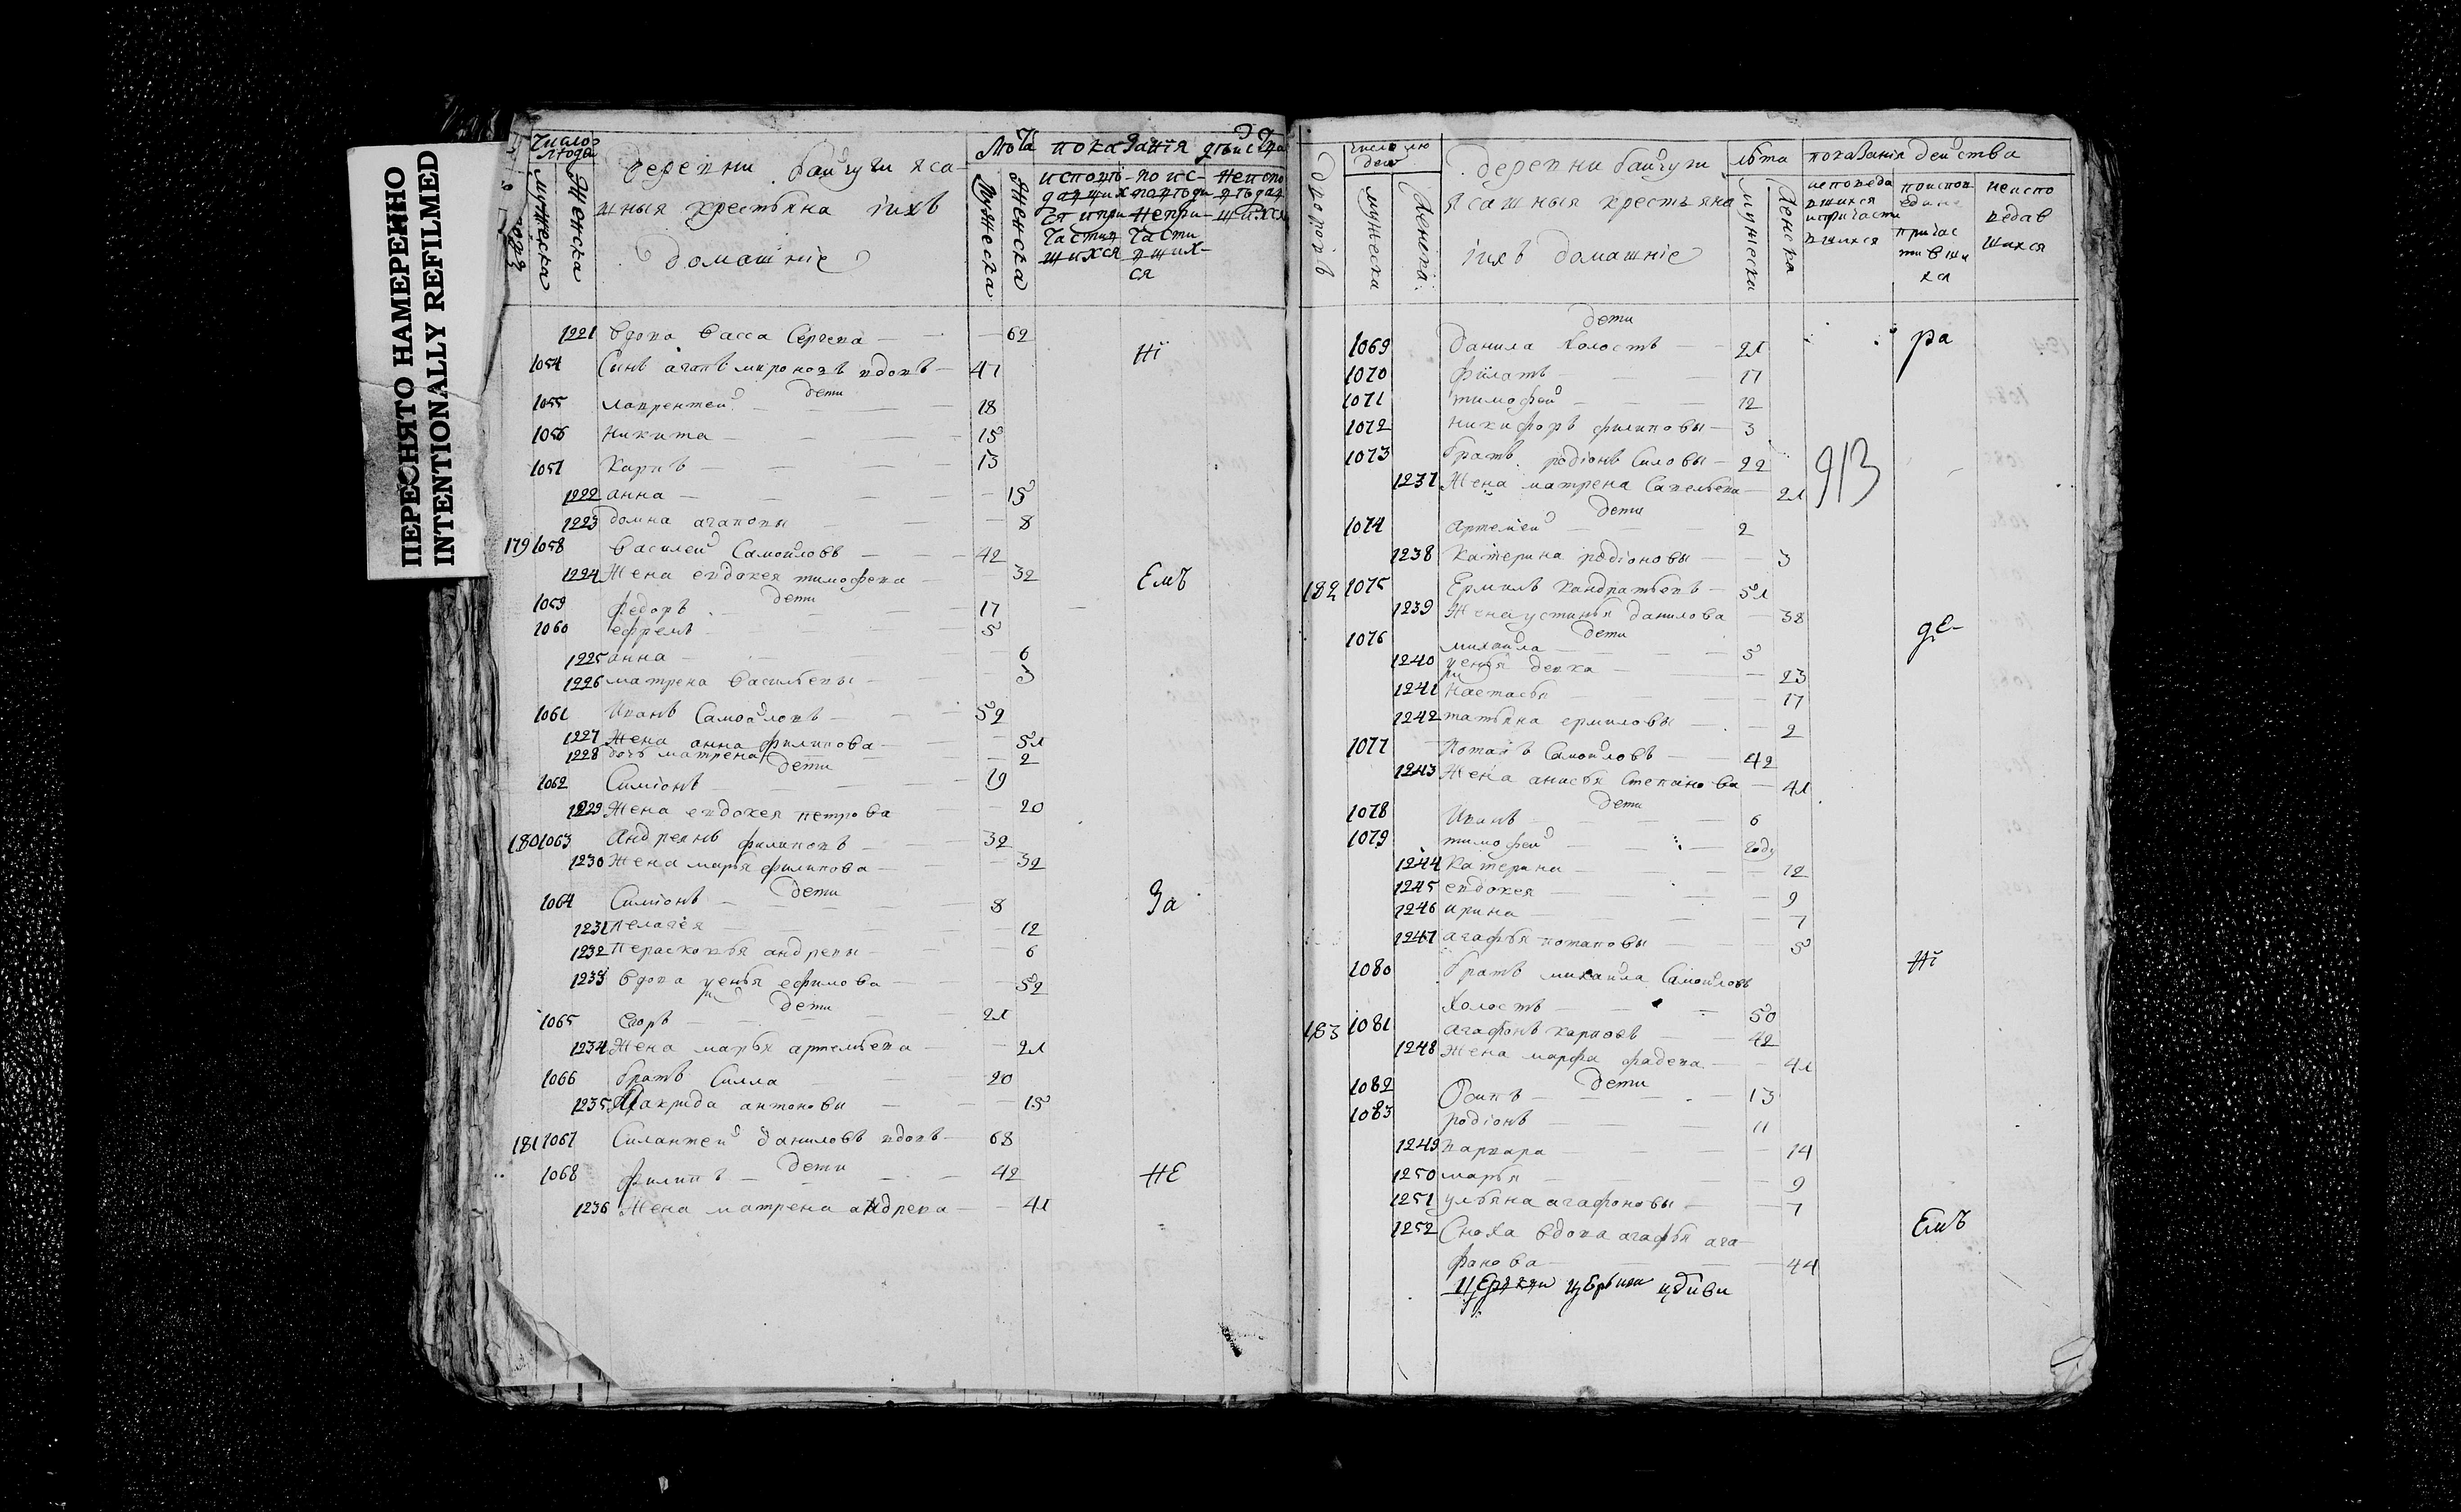 ПЕРЕСНЯТО НАМЕРЕННО
INTENTIONALLY REFILMED
число людей
мужеска
женска
деревни байгули яса-
шныя крестьяна iихъ
домашнiе
лѣта
мужеска
женска
показанiя действа
исповѣ-
давших
ся и при
частив
шихся
по ис-
поведи
непри-
части
вших-
ся
неиспо
ведав
шихся
1221 вдова васса Сергева 62
1054 Сынъ агапъ мироновъ вдовъ 47
нi
дети
1055 лаврентей 18
1056 никита 15
1057 карпъ 13
1222 анна 15
1223 домна агаповы 8
179 1058 василей Самойловъ 42
1224 жена евдокея тимофева 32
емъ
дети
1059 федоръ 17
1060 ефремъ 5
1225 анна 6
1226 матрена васильевы 3
1061 иванъ Самойловъ 52
1227 жена анна филипова 51
1228 дочь матрена 2
дети
1062 Симiонъ 19
1229 жена евдокея петрова 20
180 1063 андреянъ филиповъ 32
1230 жена марья филипова 32
дети
1064 Симiонъ 8
за
1231 пелагея 12
1232 Перасковья андревы 6
1233 вдова ефимова 52
дети
1065 егоръ 21
1234 жена марья артемьева 21
1066 братъ Силла 20
1235 Макрида антоновы 15
181 1067 Силантей даниловъ вдовъ 68
дети
1068 филипъ 42
не
1236 жена матрена андрева 41
дворовъ
число людей
мужеска
женска
деревни байгули
ясашныя крестьяна
iихъ домашнiе
лѣта
мужеска
женска
показанiя действа
исповеда
вшихся
и причасти
вшихся
неиспо
ведав
шихся
дети
1069 данила холостъ 21
ра
1070 филатъ 17
1071 тимофей 12
1072 никифоръ филиповы 3
1073 братъ родiонъ Силовы 22
913
1237 жена матрена Савельева 21
дети
1074 артемей 2
1238 катерина родiоновы 3
182 1075 Ермилъ кандратьевъ 51
1239 жена устинья данилова 38
де
дети
1076 михайла 5
1240 девка 23
1241 настасья 17
1242 татьяна ермиловы 2
1077 Потапъ Самойловъ 42
1243 жена Степанова 41
дети
1078 иванъ 6
1079 тимофей году
1244 катерина 12
1245 евдокея 9
1246 ирина 7
1247 агафья потаповы 5
нi
1080 братъ михайла Самойловъ
холостъ 50
183 1081 агафонъ карповъ 42
1248 жена марфа фадева 41
дети
1082 Осипъ 13
1083 родiонъ 11
1249 варвара 14
1250 марья 9
1251 ульяна агафоновы 7
емъ
1252 Сноха вдова агафья ага
фанова 44